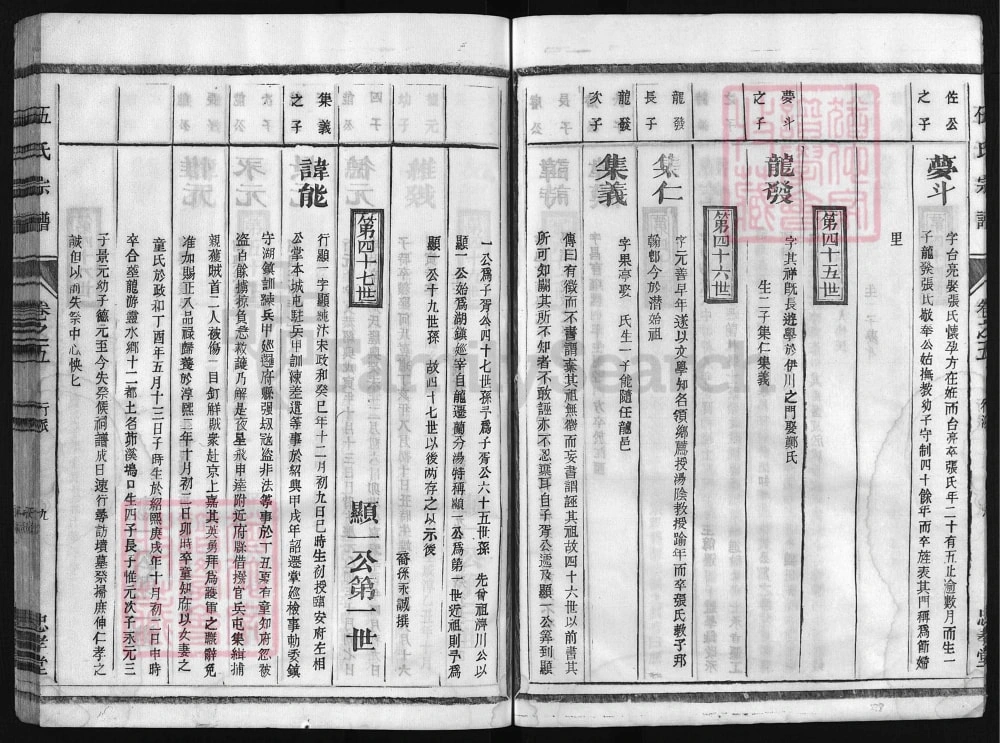 佐公之子
夢斗
字台亮娶張氏懷孕方在姙而台卒張氏年二十有五止逾數月而生一
子龍發張氏敬奉公姑撫教幼子守制四十餘年而卒旌表其門稱爲節婦
里
第四十五世
夢斗之子
龍發
字其祥旣長遊學於伊川之門娶鄭氏
生二子集仁集義
第四十六世
龍發長子
集仁
字元善早年遂以文學知名領鄉薦授湯陰教授踰年而卒張氏教子邦
翰都今於潜始祖
龍發次子
集義
字果亭娶 氏生一子能隨任龍邑
傳曰有徵而不書謂棄其祖無徵而妄書謂誣其祖故四十六世以前書其
所可知闕其所不知者不敢誣亦不忍棄耳自子胥公遞及顯一公筭到顯
一公爲子胥公四十七世孫予爲子胥公六十五世孫 先曾祖濟川公以
顯一公始爲湖鎮廵宰自龍遷蘭分湯特稱顯一公爲第一世近祖則予爲
顯一公十九世孫 故四十七世以後两存之以示後
裔孫永誠撰
第四十七世
顯一公第一世
集義之子
諱能
行顯一字顯 汴宋政和癸巳年十二月初九日己時生初授臨安府左相
公掌本城屯駐兵甲訓練差遣等事於紹興甲戌年詔遷掌廵檢事勅委鎮
守湖鎮訓練兵甲廵邏府縣强刼冦盗非法等事於丁丑夏有童知府忽被
盗百餘擄掠負急救護乃解是夜星飛申達附近府縣借撥官兵屯集緝捕
親獲賊首二人被傷二目釘解賊衆赴京上嘉其英勇拜爲護軍之職辭免
准加賜正八品祿贍養於淳熙三年十月初二日卯時卒童知府以女妻之
童氏於政和丁酉年五月十三日子時生於紹熙庚戌年十月初二日申時
卒合塟龍游靈水鄉十二都土名茆溪塢口生四子長子惟元次子永元三
子景元幼子德元至今失祭候祠譜成日速行尋訪墳墓祭掃庶伸仁孝之
誠但以前失祭中心怏匕
伍氏宗譜
卷之五
行派
九
忠孝堂
伍氏宗譜
卷之五
忠孝堂